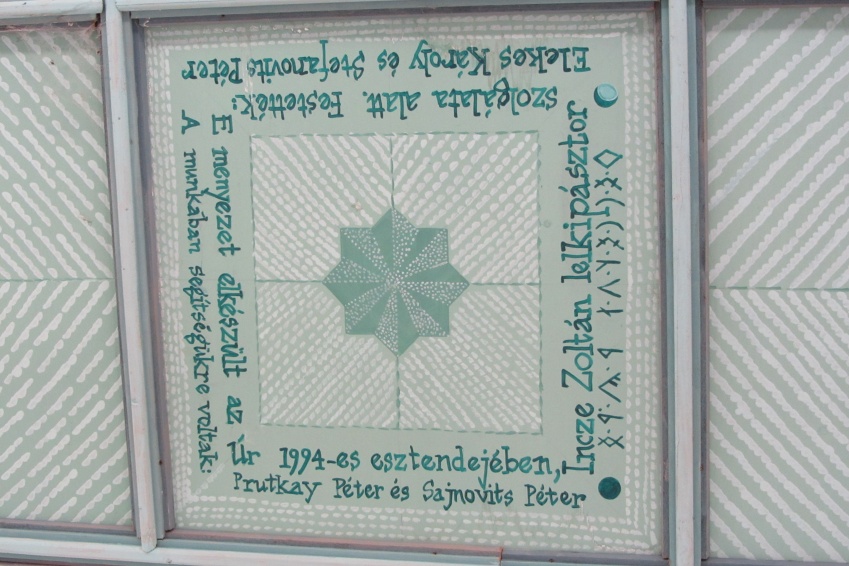 E menyezet elkészült az
Úr 1994-es esztendejében,
Incze Zoltán lelkipásztor
szolgálata alatt. Festették:
Elekes Károly és Stefanovits Péter
A munkában segítségükre voltak:
Prutkay Péter és Sajnovits Péter